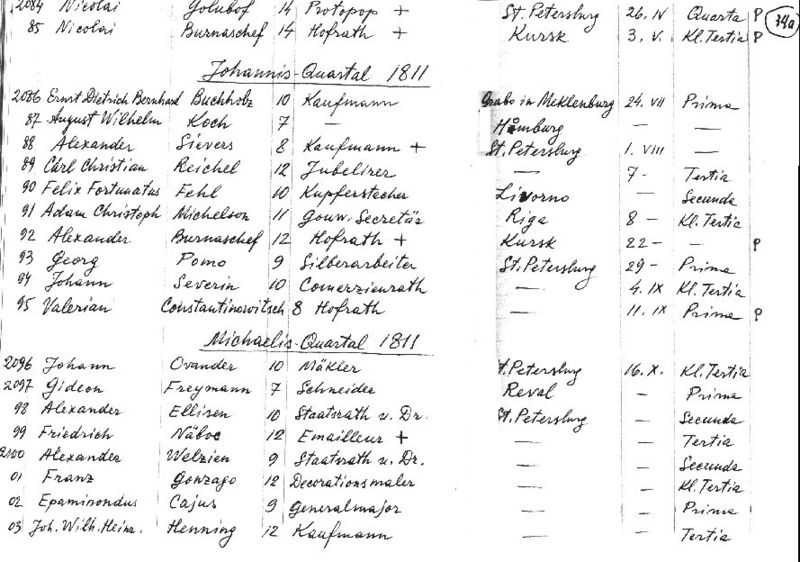 2084 Nicolai Golubof 14 Protopop + St. Petersburg 26. IV Quarta P 74a
85 Nicolai Burnaschef 14 Hofrath + Kursk 3. V. Kl. Tertia P
Johannis-Quartal 1811
2086 Ernst Dietrich Bernhard Buchholz 10 Kaufmann Grabo in Meklenburg 24. VII Prima
87 August Wilhelm Koch 7 — Hamburg — —
88 Alexander Sievers 8 Kaufmann + St. Petersburg 1. VIII —
89 Carl Christian Reichel 12 Jubelirer — 7 - Tertia
90 Felix Fortunatus Fehl 10 Kupferstecher Livorno — Secunda
91 Adam Christoph Michelson 11 Gouv. Secretär Riga 8 - Kl. Tertia
92 Alexander Burnaschef 12 Hofrath + Kursk 22 - - P
93 Georg Pomo 9 Silberarbeiter St. Petersburg 29 - Prima
94 Johann Severin 10 Comerzienrath — 4. IX Kl. Tertia
95 Valerian Constantinowitsch 8 Hofrath — 11. IX Prima P
Michaelis-Quartal 1811
2096 Johann Ovander 10 Mäkler St. Petersburg 16. X. Kl. Tertia
2097 Gideon Freymann 7 Schneider Reval — Prima
98 Alexander Ellisen 10 Staatsrath u. Dr. St. Petersburg — Secunda
99 Friedrich Näboe 12 Emailleur + — — Tertia
2100 Alexander Welzien 9 Staatsrath u. Dr. — — Secunda
01 Franz Gonzago 12 Decorationsmaler — — Kl. Tertia
02 Epaminondus Cajus 9 Generalmajor — — Prima
03 Joh. Wilh. Heinr. Henning 12 Kaufmann — — Tertia